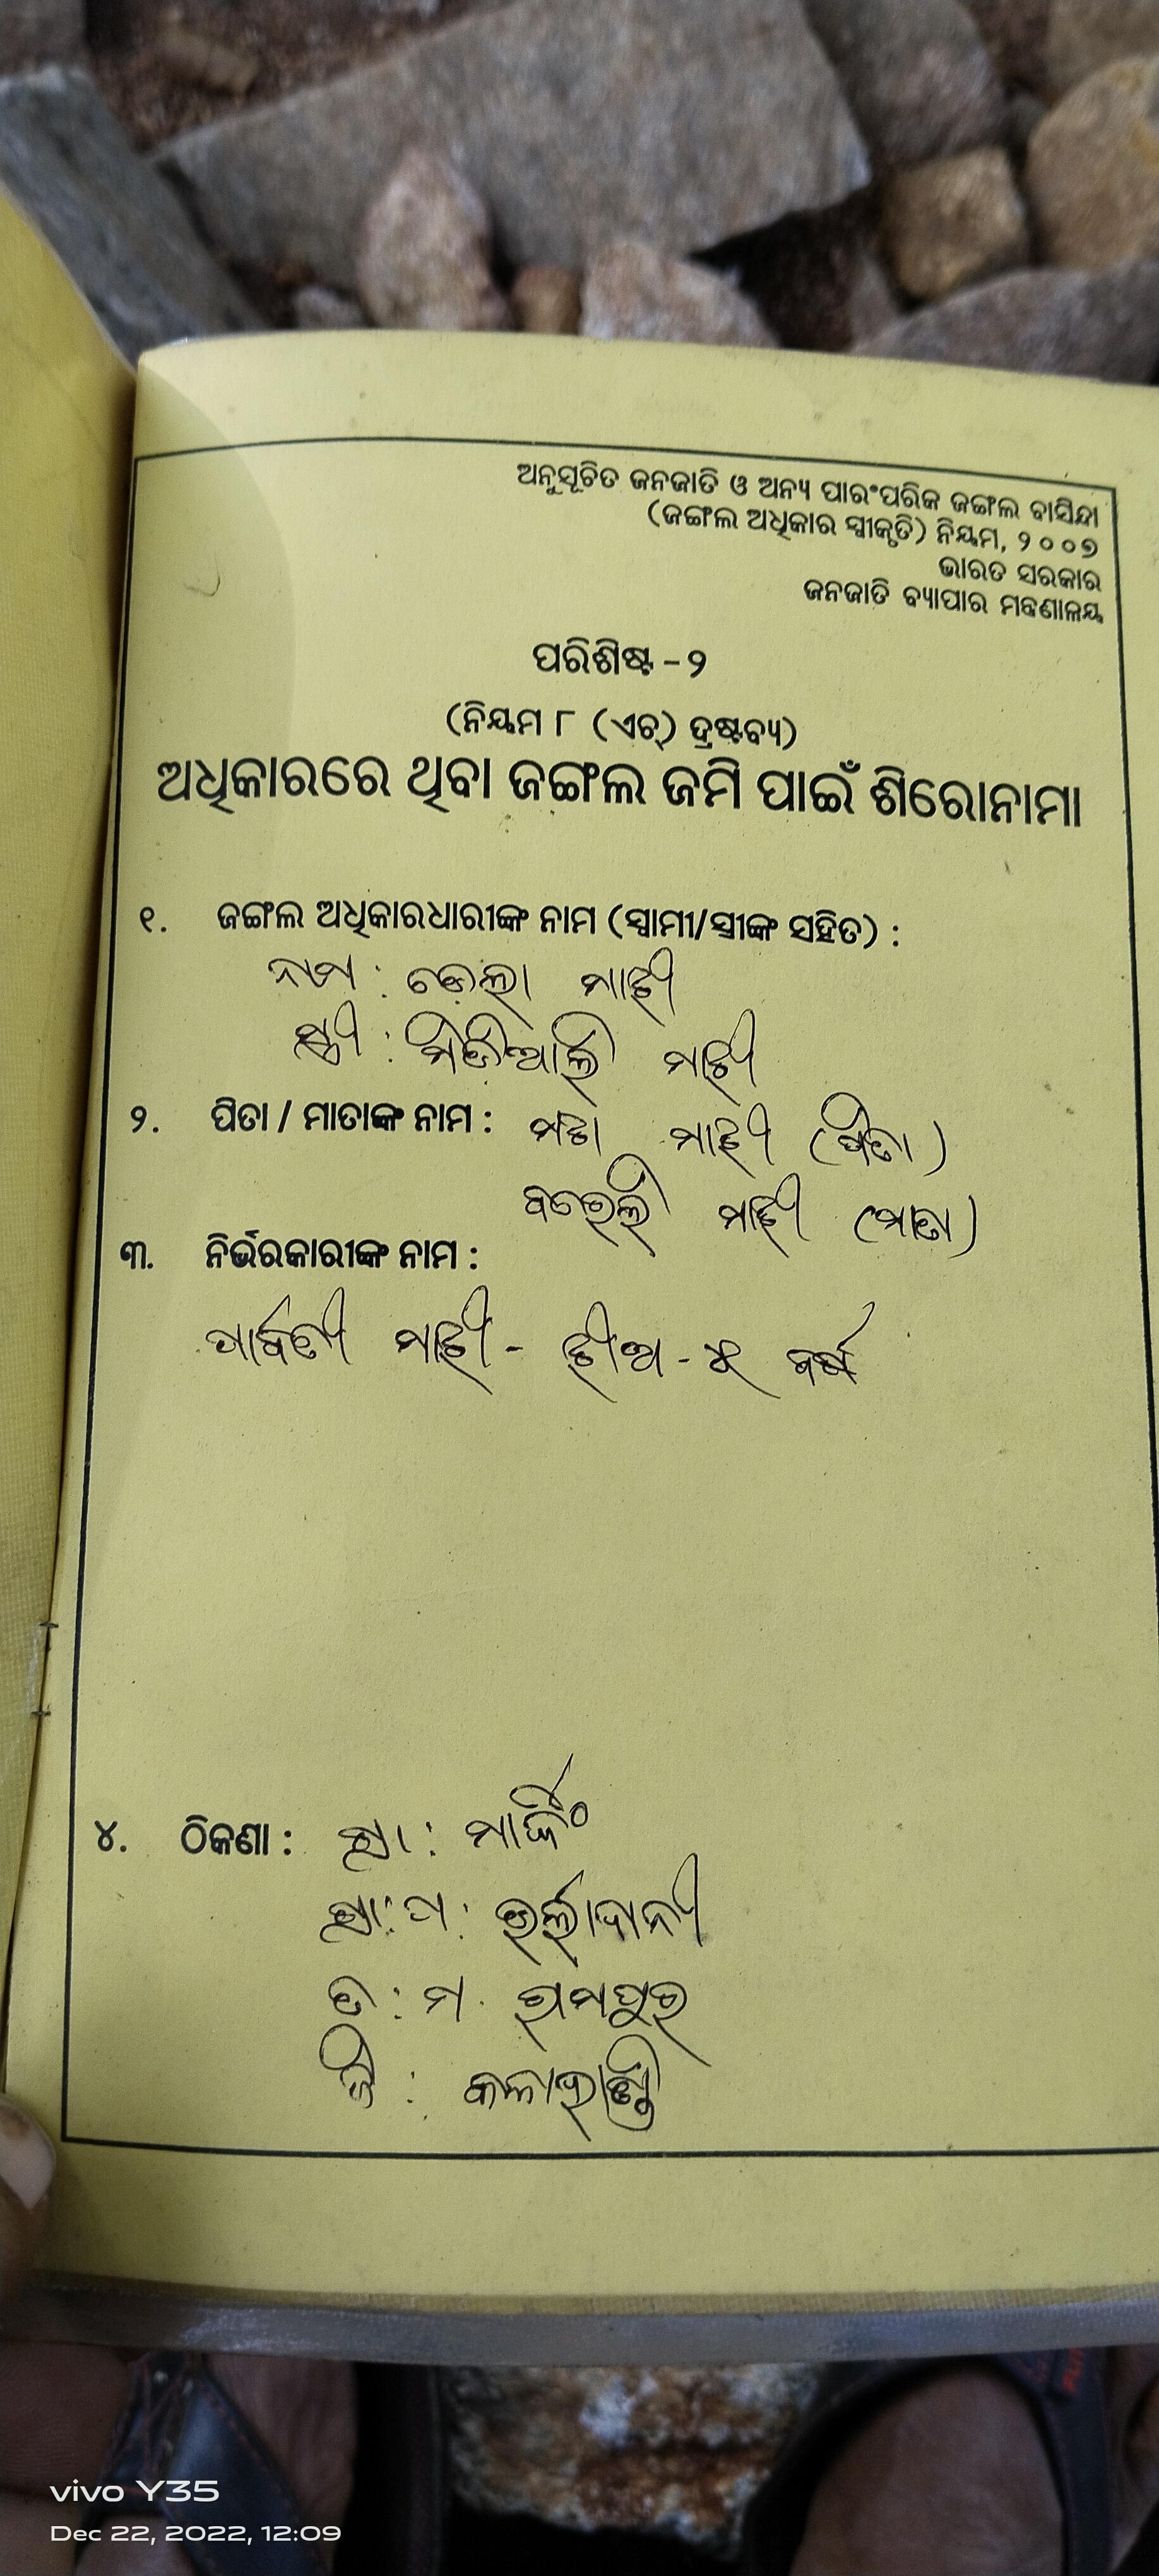 ଅନୁସୂଚିତ ଜନଜାତି ଓ ଅନ୍ୟ ପାରଂପରିକ ଜଙ୍ଗଲ ବାସିନ୍ଦା
(ଜଙ୍ଗଲ ଅଧିକାର ସ୍ୱୀକୃତି) ନିୟମ, ୨୦୦୭
ଭାରତ ସରକାର
ଜନଜାତି ବ୍ୟାପାର ମନ୍ତ୍ରଣାଳୟ
ପରିଶିଷ୍ଟ - ୨
(ନିୟମ ୮ (ଏଚ୍) ଦ୍ରଷ୍ଟବ୍ୟ)
ଅଧିକାରରେ ଥିବା ଜଙ୍ଗଲ ଜମି ପାଇଁ ଶିରୋନାମା
୧. ଜଙ୍ଗଲ ଅଧିକାରଧାରୀଙ୍କ ନାମ (ସ୍ୱାମୀ/ସ୍ତ୍ରୀଙ୍କ ସହିତ) :
ନାମ : ମାଝୀ
ସ୍ତ୍ରୀ : ମାଝୀ
୨. ପିତା / ମାତାଙ୍କ ନାମ : ମାଝୀ (ପିତା)
ମାଝୀ (ମାତା)
୩. ନିର୍ଭରକାରୀଙ୍କ ନାମ :
ପାର୍ବତୀ ମାଝୀ - ଝୀଅ - ବର୍ଷ
୪. ଠିକଣା : ଗ୍ରା :
ଗ୍ରା: ପ:
ତ : ମ. ରାମପୁର
ଜି : କଳାହାଣ୍ଡି
vivo Y35
Dec 22, 2022, 12:09